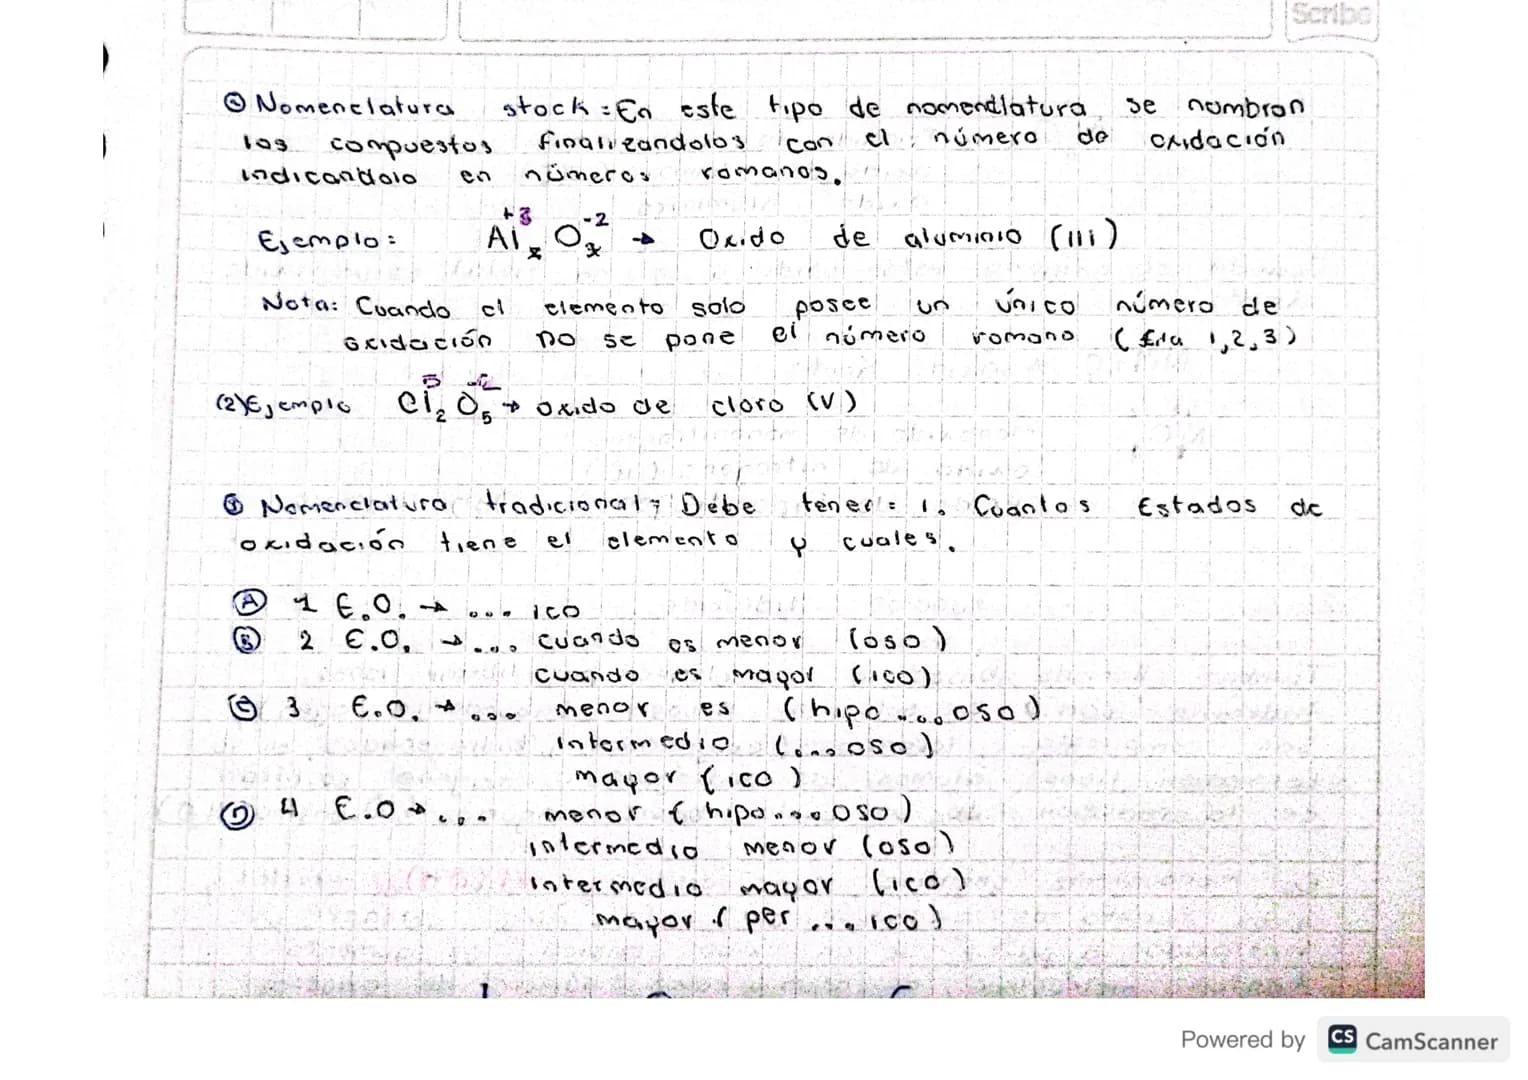 Scribe
② Nomenclatura stock: En este tipo de nomendlatura se nombran
los compuestos finalizandolos con el número de oxidación
indicandolo en números romanos.
Ejemplo: Al⁺³ₓ O⁻²ₓ → Oxido de aluminio (iii)
Nota: Cuando el elemento solo posee un único número de
oxidación no se pone el número romano (1,2,3)
(2) Ejemplo Cl₂ O₅ → oxido de cloro (V)
③ Nomenclatura tradicional: Debe tener: 1. Cuantos Estados de
oxidación tiene el elemento y cuales.
Ⓐ 1 E.O. → ... ico
Ⓑ 2 E.O. → ... cuando es menor (oso)
cuando es mayor (ico)
Ⓒ 3 E.O. → ... menor es (hipo ... oso)
Intermedio (... oso)
mayor (ico)
Ⓓ 4 E.O → ... menor (hipo ... oso)
intermedio menor (oso)
intermedio mayor (ico)
mayor (per ... ico)
Powered by CS CamScanner